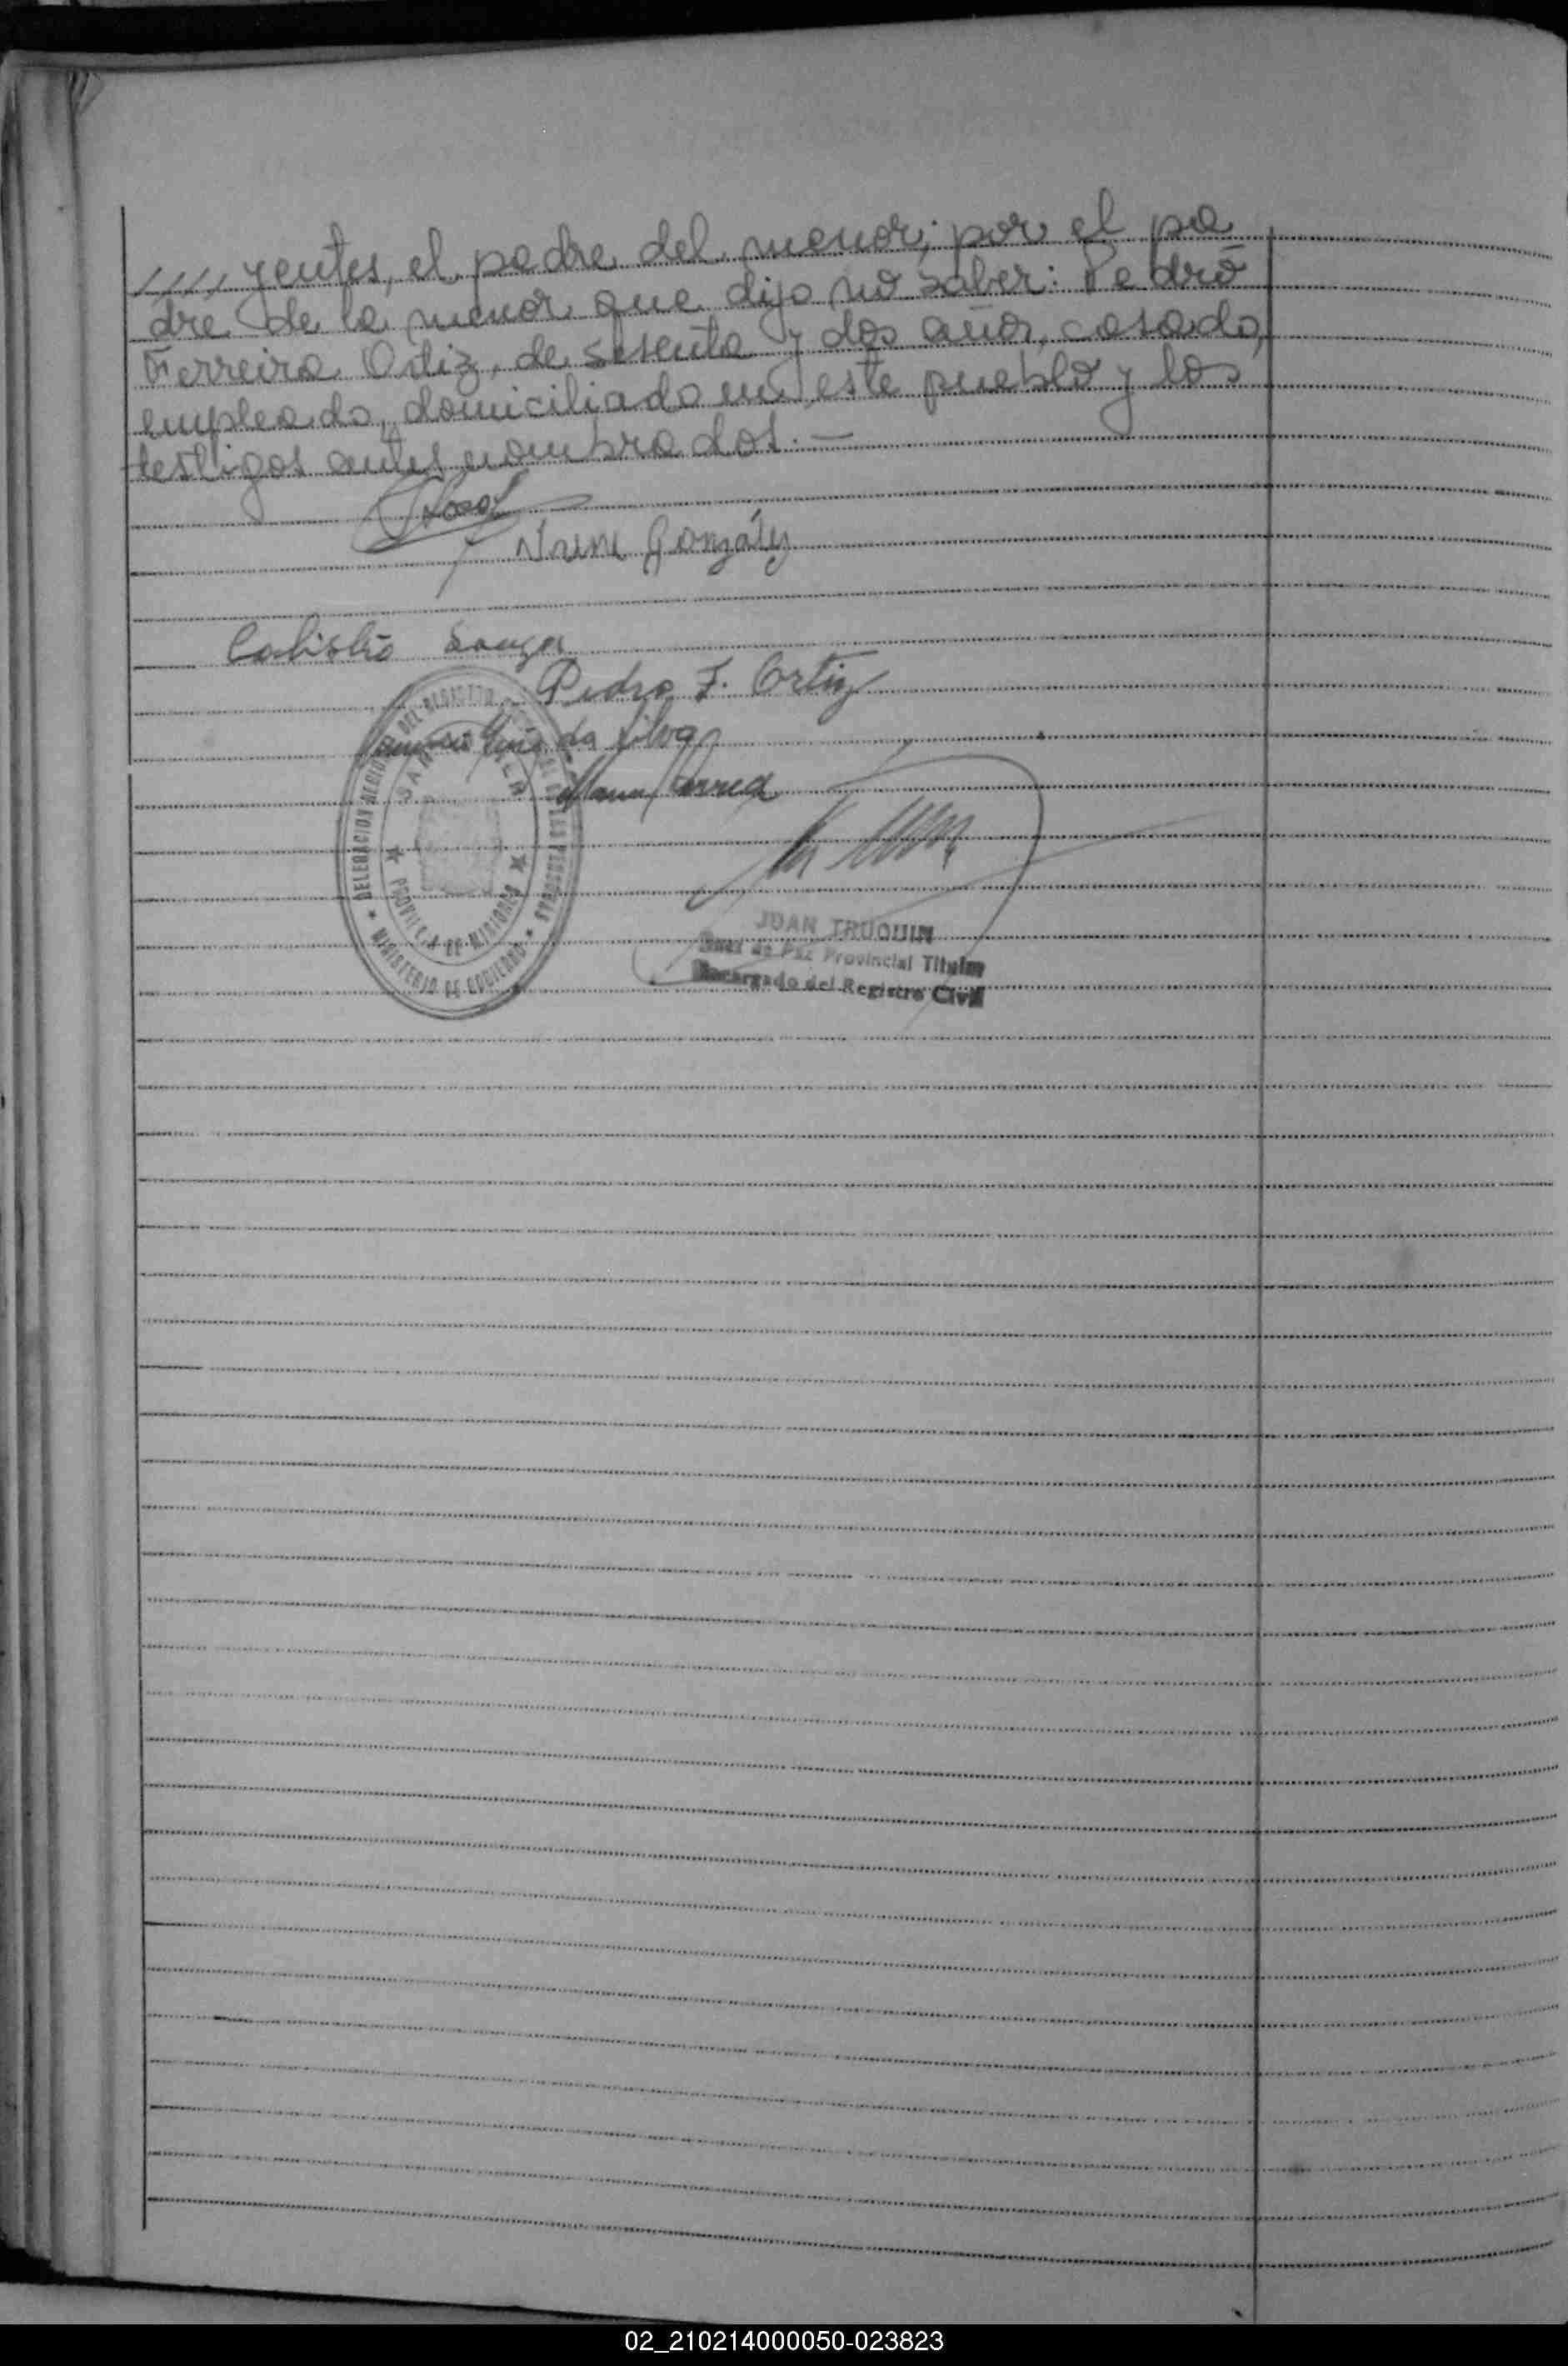 //// yentes, el padre del menor; por el pa
dre de la menor que dijo no saber: Pedro
Ferreira Ortiz, de sesenta y dos años, casado,
empleado, domiciliado en este pueblo y los
testigos antes nombrados.—
González
Calistro Souza
Pedro F. Ortiz
da Silva
DELEGACION DEL REGISTRO DE LAS PERSONAS
PROVINCIA DE MISIONES
MINISTERIO DE GOBIERNO
JUAN TRUQUIN
Juez de Paz Provincial Titular
Encargado del Registro Civil
02_210214000050-023823